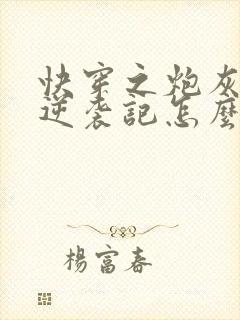 快穿之炮灰
逆袭記怎麼
楊富春